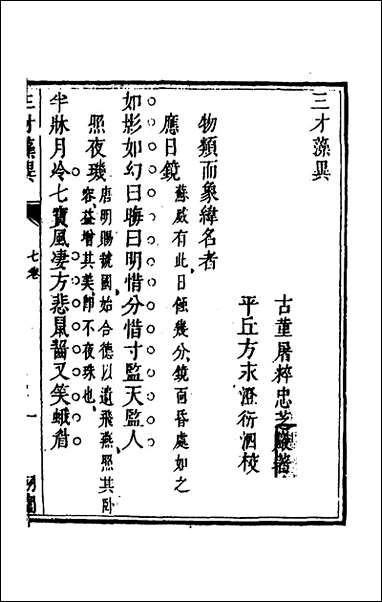 三才藻異
古董屠粹忠芝巖著
平丘方永澄衍泗校
物類而象緯名者
應日鏡蘇威有此日蝕幾分鏡面昏處如之
如影如幻曰晦曰明惜分惜寸監天監人
照夜璣唐明賜虢國始合德以遺飛燕照其卧
容益增其美卽不夜珠也
半牀月冷七寶風凄方悲鼠齧又笑蛾眉
三才藻異
七卷
一